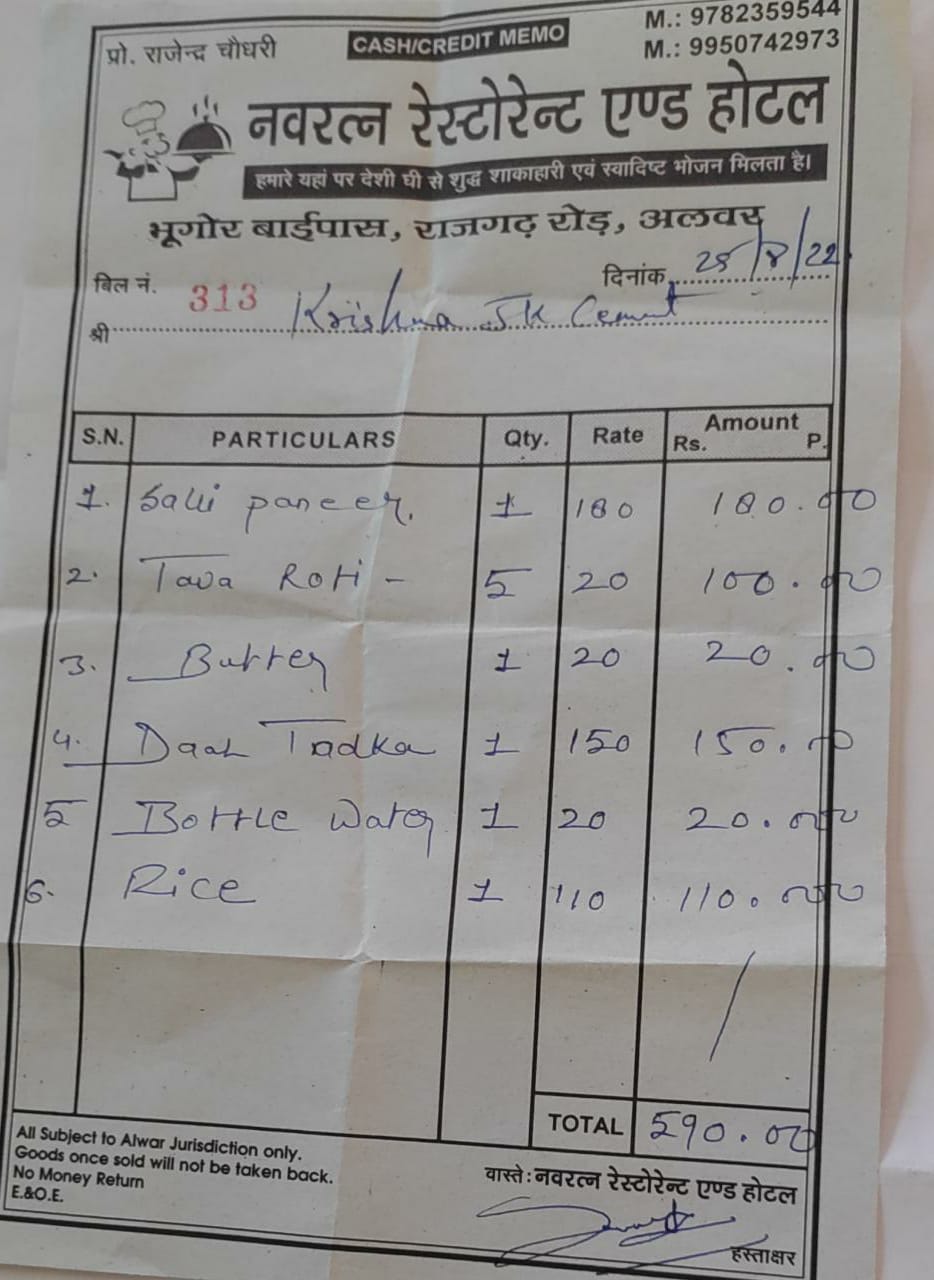 प्रो. राजेन्द्र चौधरी
CASH/CREDIT MEMO
M.: 9782359544
M.: 9950742973
नवरत्न रेस्टोरेन्ट एण्ड होटल
हमारे यहां पर देशी घी से शुद्ध शाकाहारी एवं स्वादिष्ट भोजन मिलता है।
भूगोर बाईपास, राजगढ़ रोड़, अलवर
बिल नं. 313 दिनांक 25/8/22
श्री Krishna JK Cement
S.N. PARTICULARS Qty. Rate Amount Rs. P.
1. paneer. 1 180 180.00
2. Tava Roti - 5 20 100.00
3. Butter 1 20 20.00
4. Daal Tadka 1 150 150.00
5 Bottle Water 1 20 20.00
6. Rice 1 110 110.00
TOTAL 590.00
All Subject to Alwar Jurisdiction only.
Goods once sold will not be taken back.
No Money Return
E.&O.E.
वास्ते : नवरत्न रेस्टोरेन्ट एण्ड होटल
हस्ताक्षर